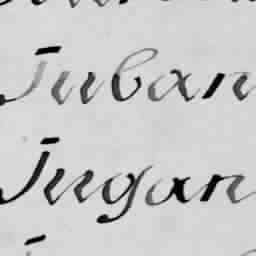 Juban
Jugan